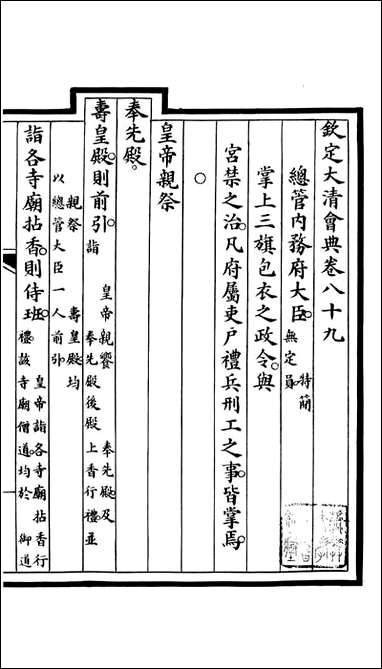 欽定大清會典卷八十九
總管內務府大臣。特簡
無定員。
掌上三旗包衣之政令。與
宮禁之治。凡府屬吏戶禮兵刑工之事。皆掌焉。
○
皇帝親祭
奉先殿。
壽皇殿。則前引。皇帝親饗 奉先殿。及
詣 奉先殿後殿 上香行禮。並
親祭 壽皇殿。均
以總管大臣一人前引。
詣各寺廟拈香。則侍班。皇帝詣各寺廟拈香行
禮。該寺廟僧道。均於 御道